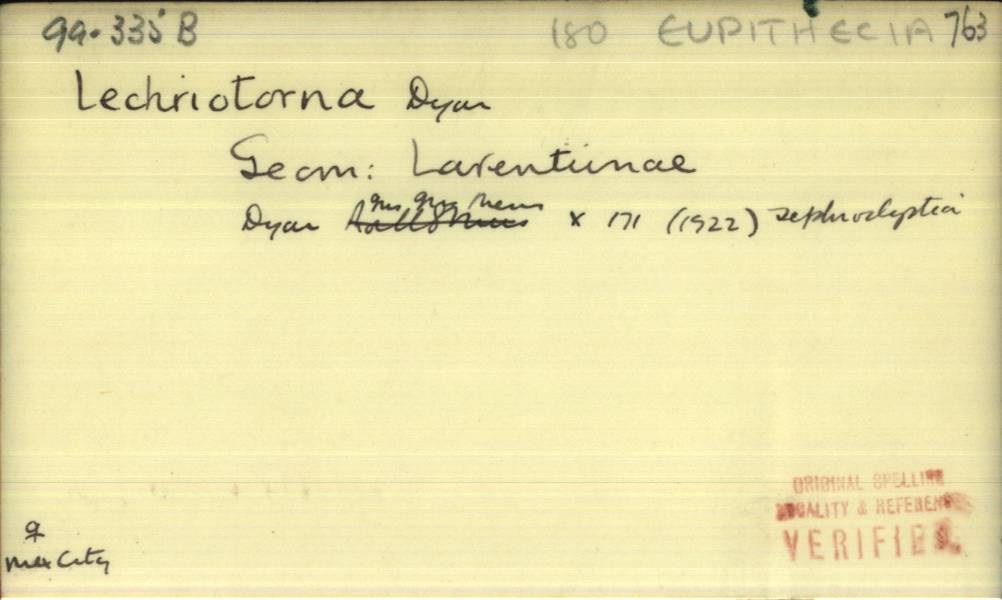 99.335 B 180 EUPITHECIA 763
Lechriotorna Dyar
Geom: Larentiinae
Ins Ins Mens
Dyar x 171 (1922) zephyroclyptia
♀
Mex City
ORIGINAL SPELLING
LOCALITY & REFERENCE
VERIFIED